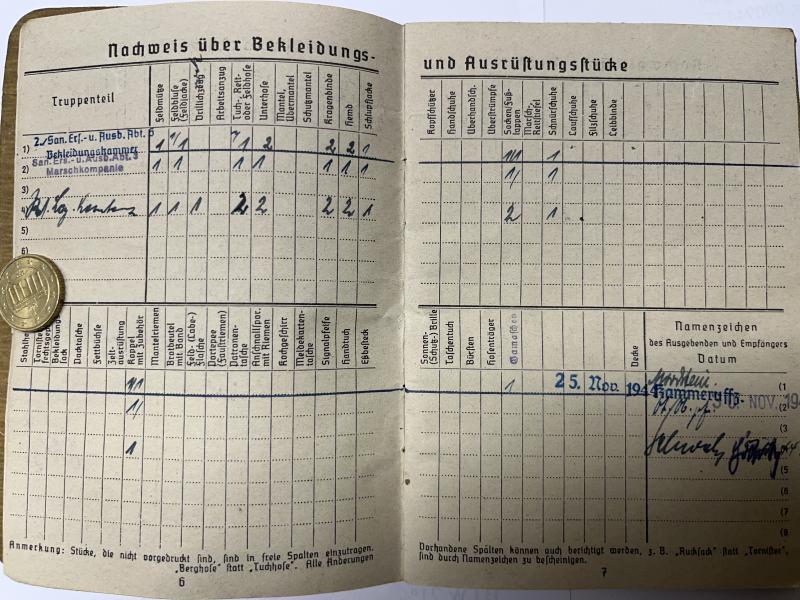 Nachweis über Bekleidungs-
Truppenteil
Feldmütze
Feldbluse (Feldjacke)
Drillichzeug
Arbeitsanzug
Tuch-, Reit- oder Feldhose
Unterhose
Mantel, Übermantel
Schutzmantel
Kragenbinde
Hemd
Schlupfjacke
1) 2. San. Ers.- u. Ausb. Abt. 1 1/1 1 2 2 2 1
Bekleidungskammer
2) San. Ers.- u. Ausb. Abt. 3 1 1 1 1 1 1 1
Marschkompanie
3)
4) 1 1 1 2 2 2 2 1
5)
6)
Stahlhelm
Tornister
Bekleidungssack
Packtasche
Fettbüchse
Zeltausrüstung
Koppel mit Zubehör
Mantelriemen
Brotbeutel mit Band
Feld- (Labe-) flasche
Portepee (Faustriemen)
Patronentasche
Anschnallspor. mit Riemen
Kochgeschirr
Meldekartentasche
Signalpfeife
Handtuch
Eßbesteck
1/1
1/
1
Anmerkung: Stücke, die nicht vorgedruckt sind, sind in freie Spalten einzutragen.
„Berghose" statt „Tuchhose". Alle Änderungen
6
und Ausrüstungsstücke
Kopfschützer
Handschuhe
Überhandsch.
Überstrümpfe
Socken/Fußlappen
Marsch-, Reitstiefel
Schnürschuhe
Laufschuhe
Filzschuhe
Leibbinde
1/1 1
1/ 1
2 1
Sonnen- (Schutz-) Brille
Taschentuch
Bürsten
Hosenträger
Gamaschen
Decke
Namenzeichen
des Ausgebenden und Empfängers
Datum
1 25. Nov. 1944 Kammeruffz. (1
NOV. 194 (2
(3
(5
(6
(7
(8
Vorhandene Spalten können auch berichtigt werden, z. B. „Rucksack" statt „Tornister",
sind durch Namenzeichen zu bescheinigen.
7